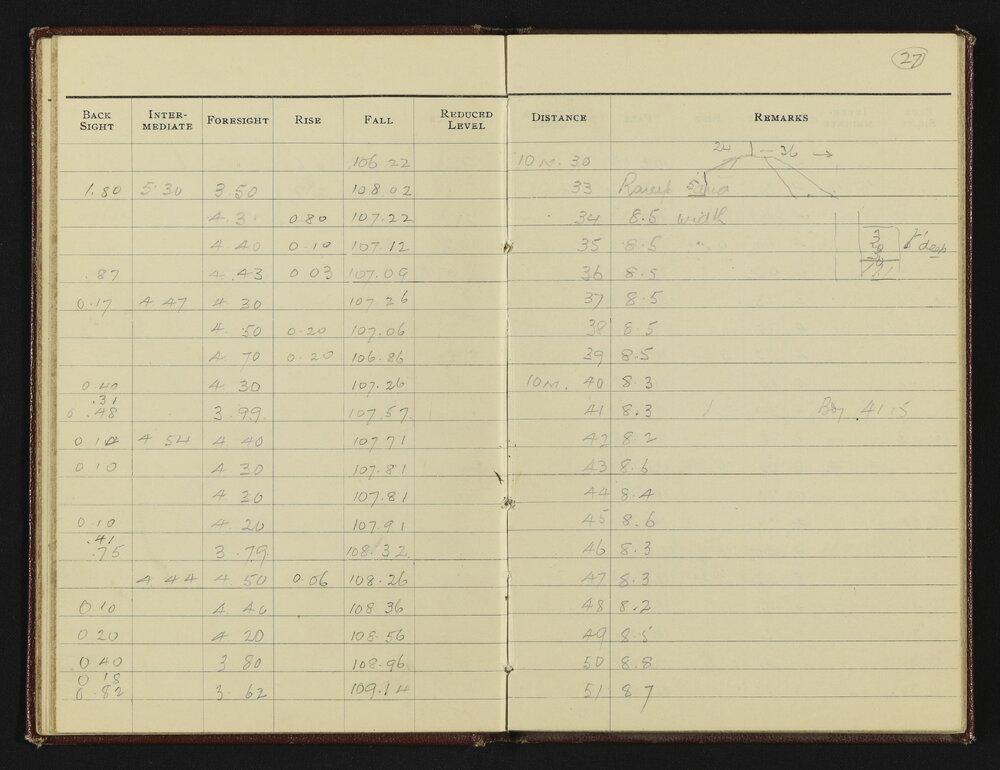 27
BACK SIGHT INTER-MEDIATE FORESIGHT RISE FALL REDUCED LEVEL DISTANCE REMARKS
106.22 10 m. 30 24 36
1.80 5.30 3.50 108.02 33
4.3 0.80 107.22 34 8.5 width
4.40 0.10 107.12 35 8.5 deep
.87 4.43 0.03 107.09 36 8.5
0.17 4.47 4.30 107.26 37 8.5
4.50 0.20 107.06 38 8.5
4.70 0.20 106.86 39 8.5
0.40 4.30 107.26 10 m. 40 8.3
.31
.48 3.99 107.57 41 8.3 41.15
0.14 4.54 4.40 107.71 42 8.2
0.10 4.30 107.81 43 8.6
4.30 107.81 44 8.4
0.10 4.20 107.91 45 8.6
.41
.75 3.79 108.32 46 8.3
4.44 4.50 0.06 108.26 47 8.3
0.10 4.40 108.36 48 8.2
0.20 4.20 108.56 49 8.5
0.40 3.80 108.96 50 8.8
0.18
0.82 3.62 109.14 51 8.7